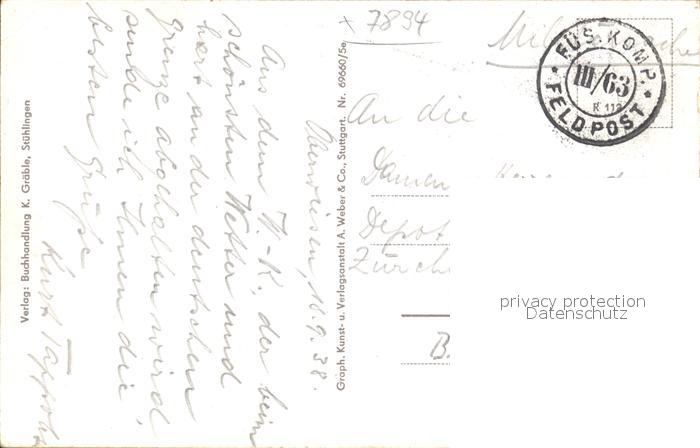 × 7894
FÜS. KOMP.
III/63
R 113
FELDPOST
Oberwiesen, 16.9.38.
Aus dem W.-K., der beim
schönsten Wetter und
hart an der deutschen
grenze abgehalten wird,
sende ich Ihnen die
besten Grüsse
Kurt
An die
Damen
Depot
Zürch
B.
Verlag: Buchhandlung K. Gräble, Stühlingen
Graph. Kunst- u. Verlagsanstalt A. Weber & Co., Stuttgart. Nr. 69660/5e
privacy protection
Datenschutz